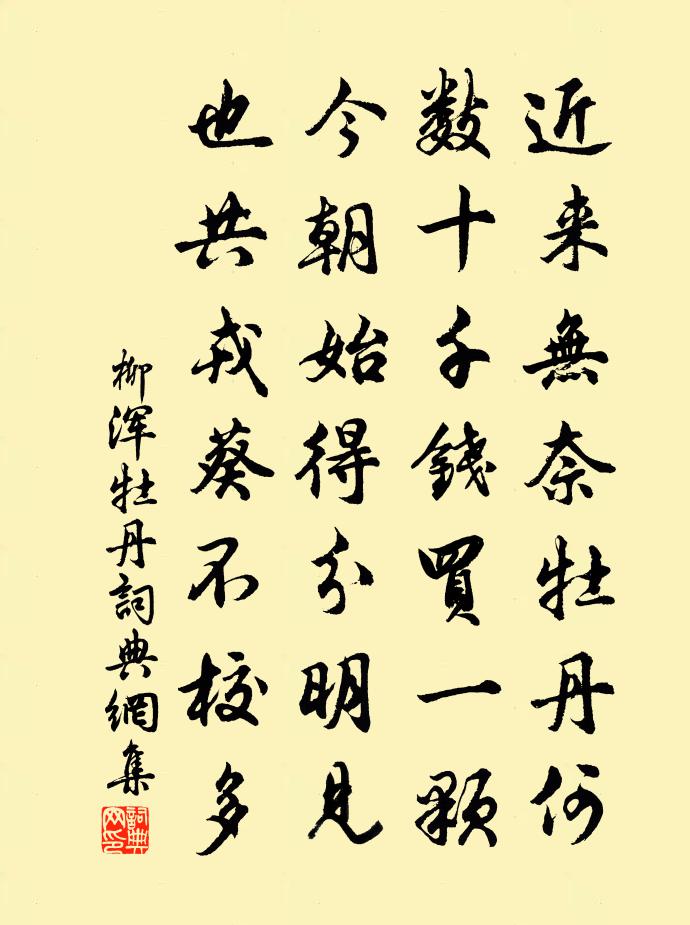 近来無奈牡丹何
数十千錢買一顆
今朝始得分明見
也共戎葵不校多
柳浑牡丹詞典網集
詞典網印